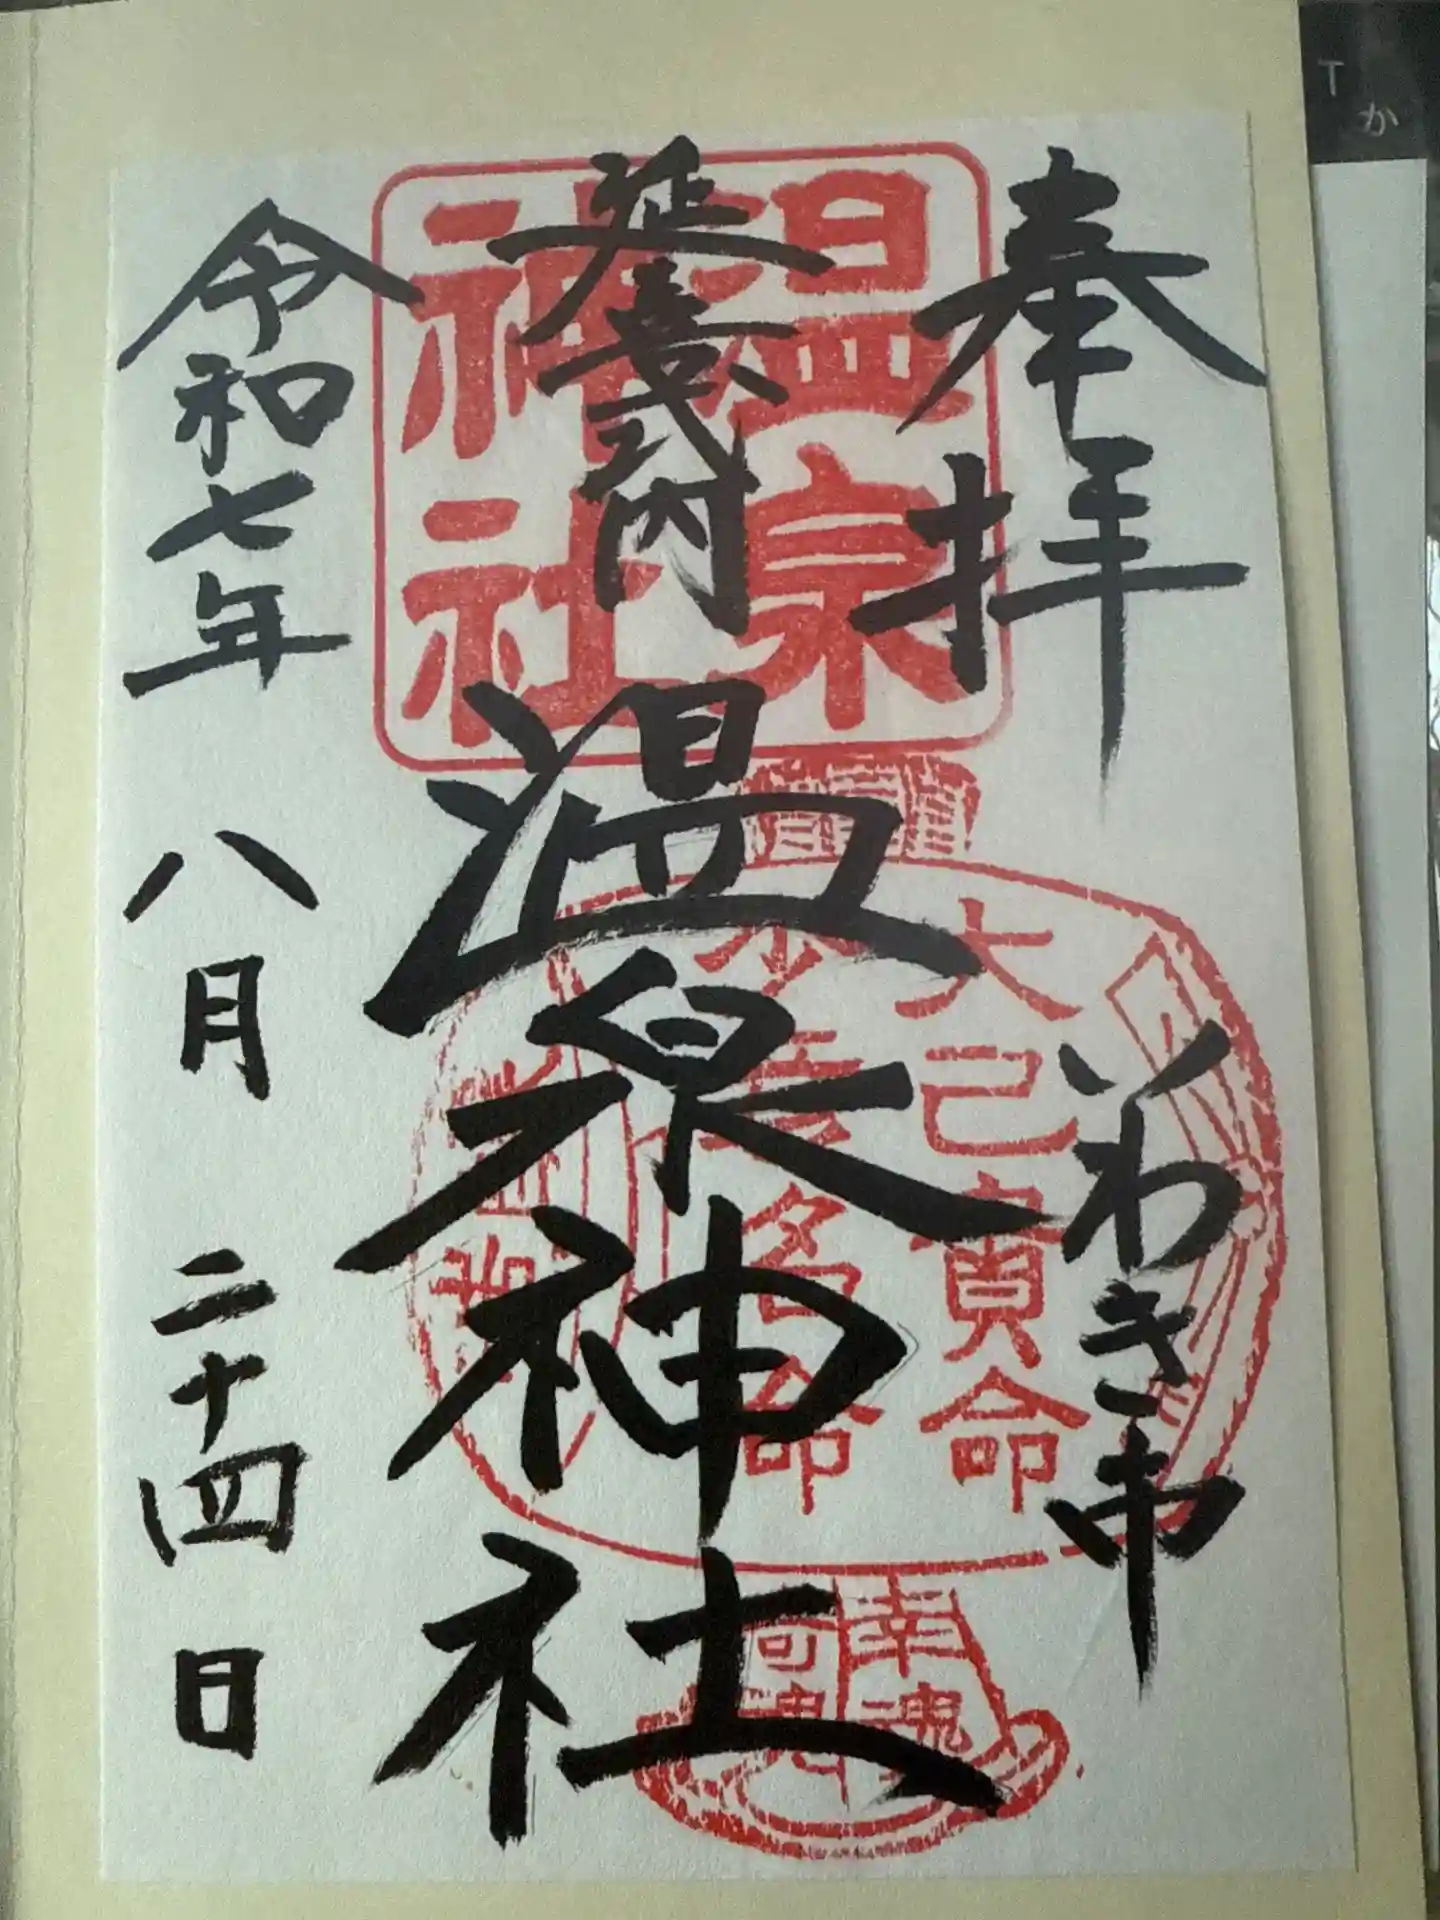 奉拝
いわき市
延喜式内
温泉神社
令和七年
八月
二十四日
温泉
神社
大己貴命
少彦名命
幸魂
奇魂
T
か